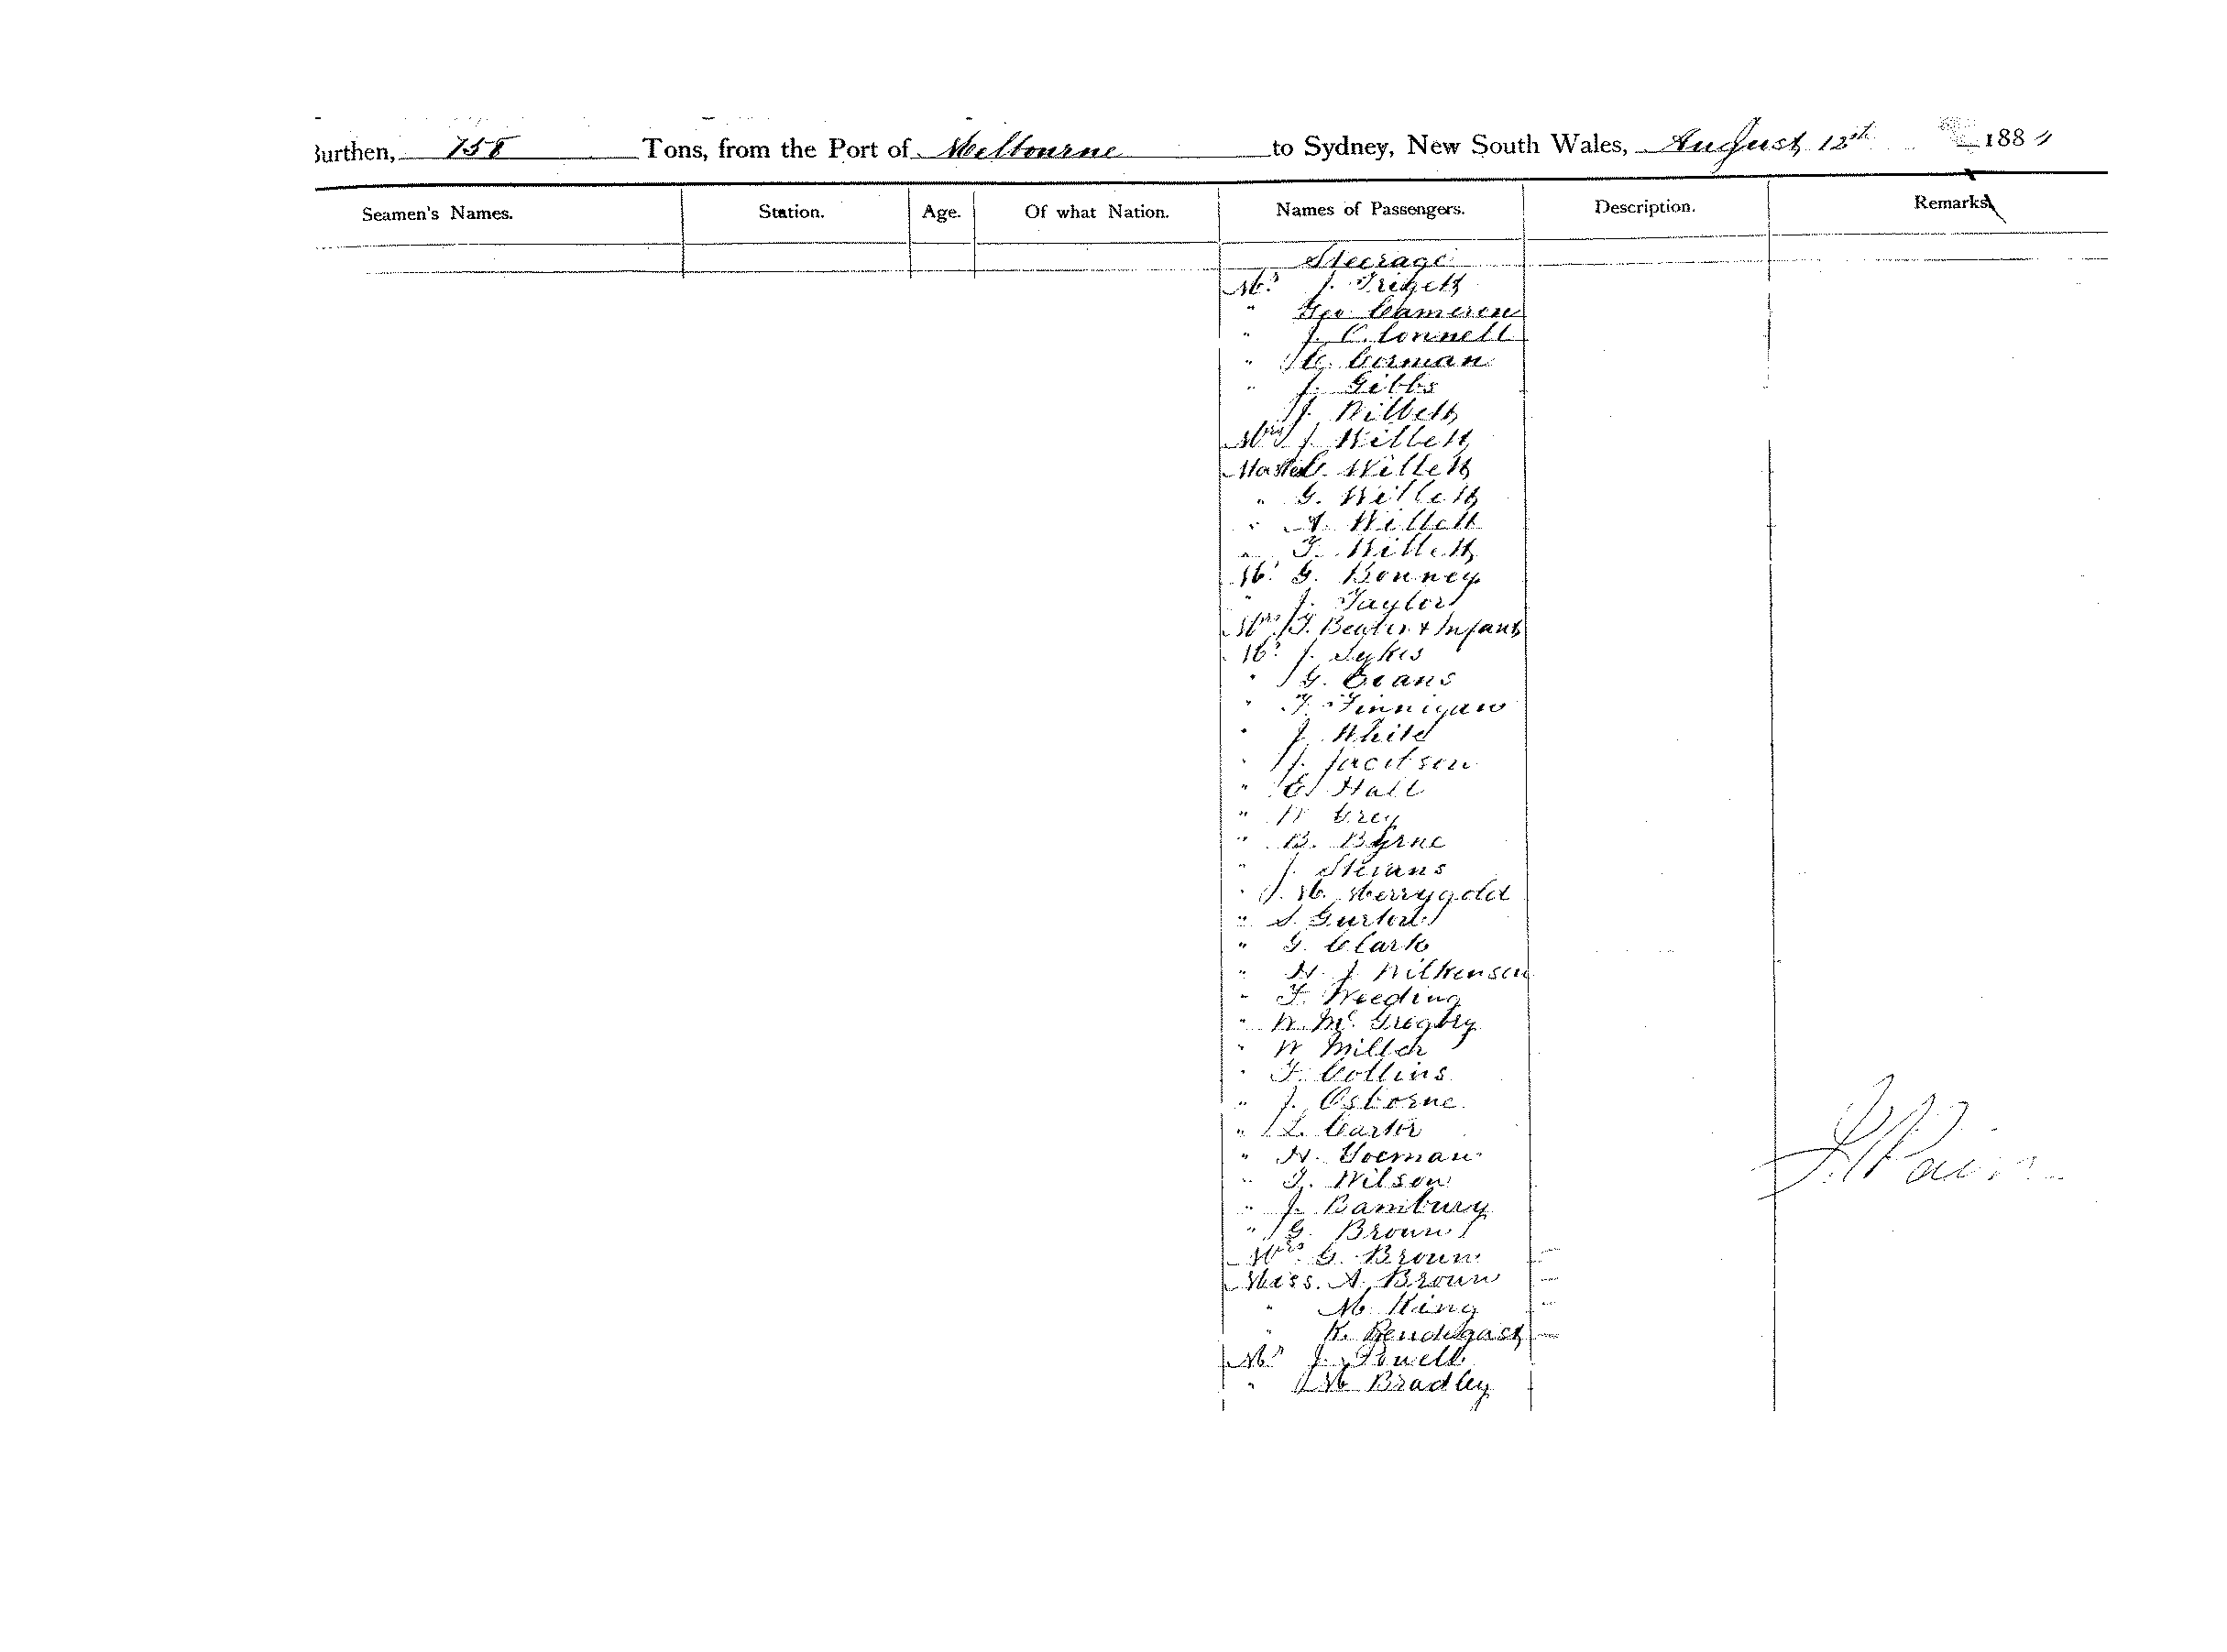 Burthen, 758 Tons, from the Port of Melbourne to Sydney, New South Wales, August 12th 188
Seamen's Names. Station. Age. Of what Nation. Names of Passengers. Description. Remarks
Steerage
Mr J.
" Geo Cameron
" J. C. Connell
" Corman
" J. Gibbs
J. Willett
Mrs J. Willett
Master C. Willett
" G. Willett
" A. Willett
" F. Willett
Mr G. Bonney
" J. Taylor
Mrs & Infant
Mr J. Sykes
" G. Evans
" F. Finnigan
" J. White
" J. Jackson
" E. Hall
" W Grey
" B. Byrne
" J. Stevans
" J. M. Merrygold
" S.
" G. Clark
" H. J. Wilkenson
" F. Weeding
" W. Mc. Gregory
" W Miller
" F. Collins
" J. Osborne
" L. Carter
" H. Yoeman
" T. Wilson
" J. Bambury
" G. Brown
Mrs G. Brown
Miss. A. Brown
" M. King
" K. Pendegast
Mr J. Powell
" M Bradley